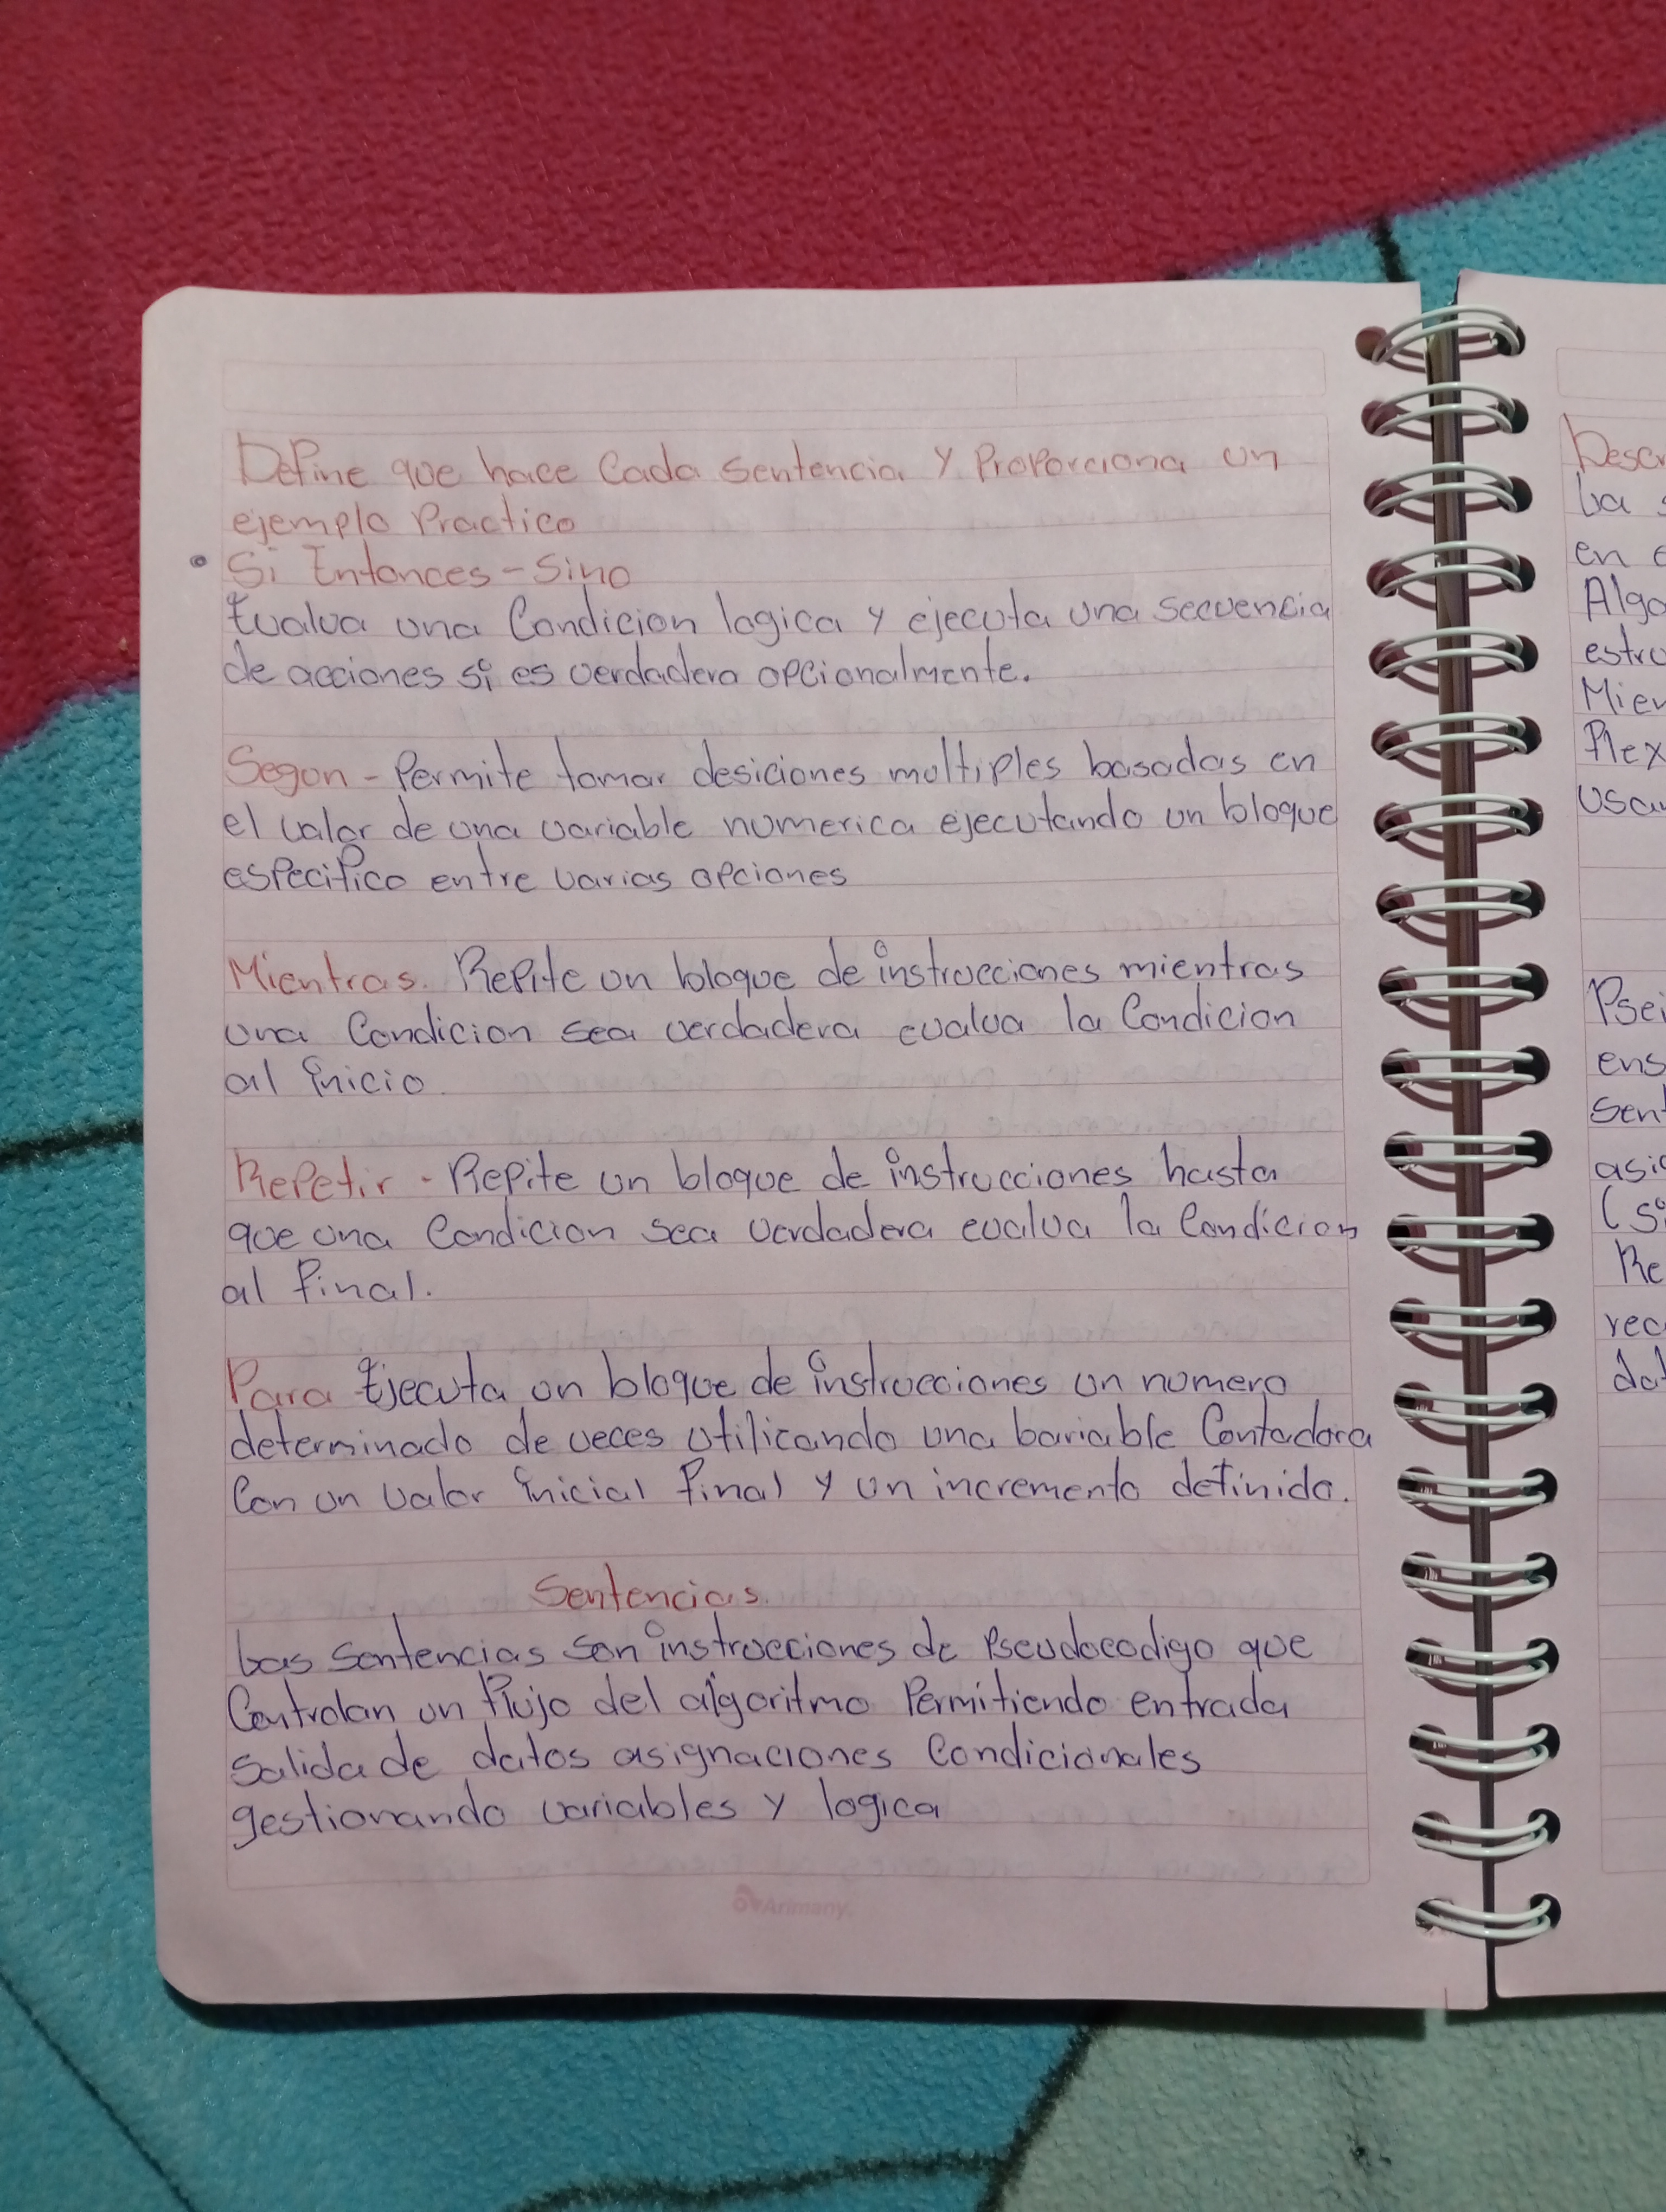 Define que hace Cada Sentencia y Proporciona un
ejemplo Practico
Si Entonces - Sino
Evalua una Condicion logica y ejecuta una secuencia
de acciones si es verdadera opcionalmente.
Segun - Permite tomar desiciones multiples basadas en
el valor de una variable numerica ejecutando un bloque
especifico entre varias opciones
Mientras. Repite un bloque de instrucciones mientras
una Condicion sea verdadera evalua la Condicion
al inicio
Repetir - Repite un bloque de instrucciones hasta
que una Condicion sea verdadera evalua la Condicion
al final.
Para Ejecuta un bloque de instrucciones un numero
determinado de veces utilicando una bariable Contadora
Con un valor inicial final y un incremento definido.
Sentencias.
Las Sentencias son instrucciones de Pseudocodigo que
Controlan un flujo del algoritmo Permitiendo entrada
salida de datos asignaciones Condicionales
gestionando variables y logica
Arimany
Descr
La s
en e
Algo
estru
Mien
Plex
Usan
Psei
ens
Sent
asig
(Si
Re
rec
dat